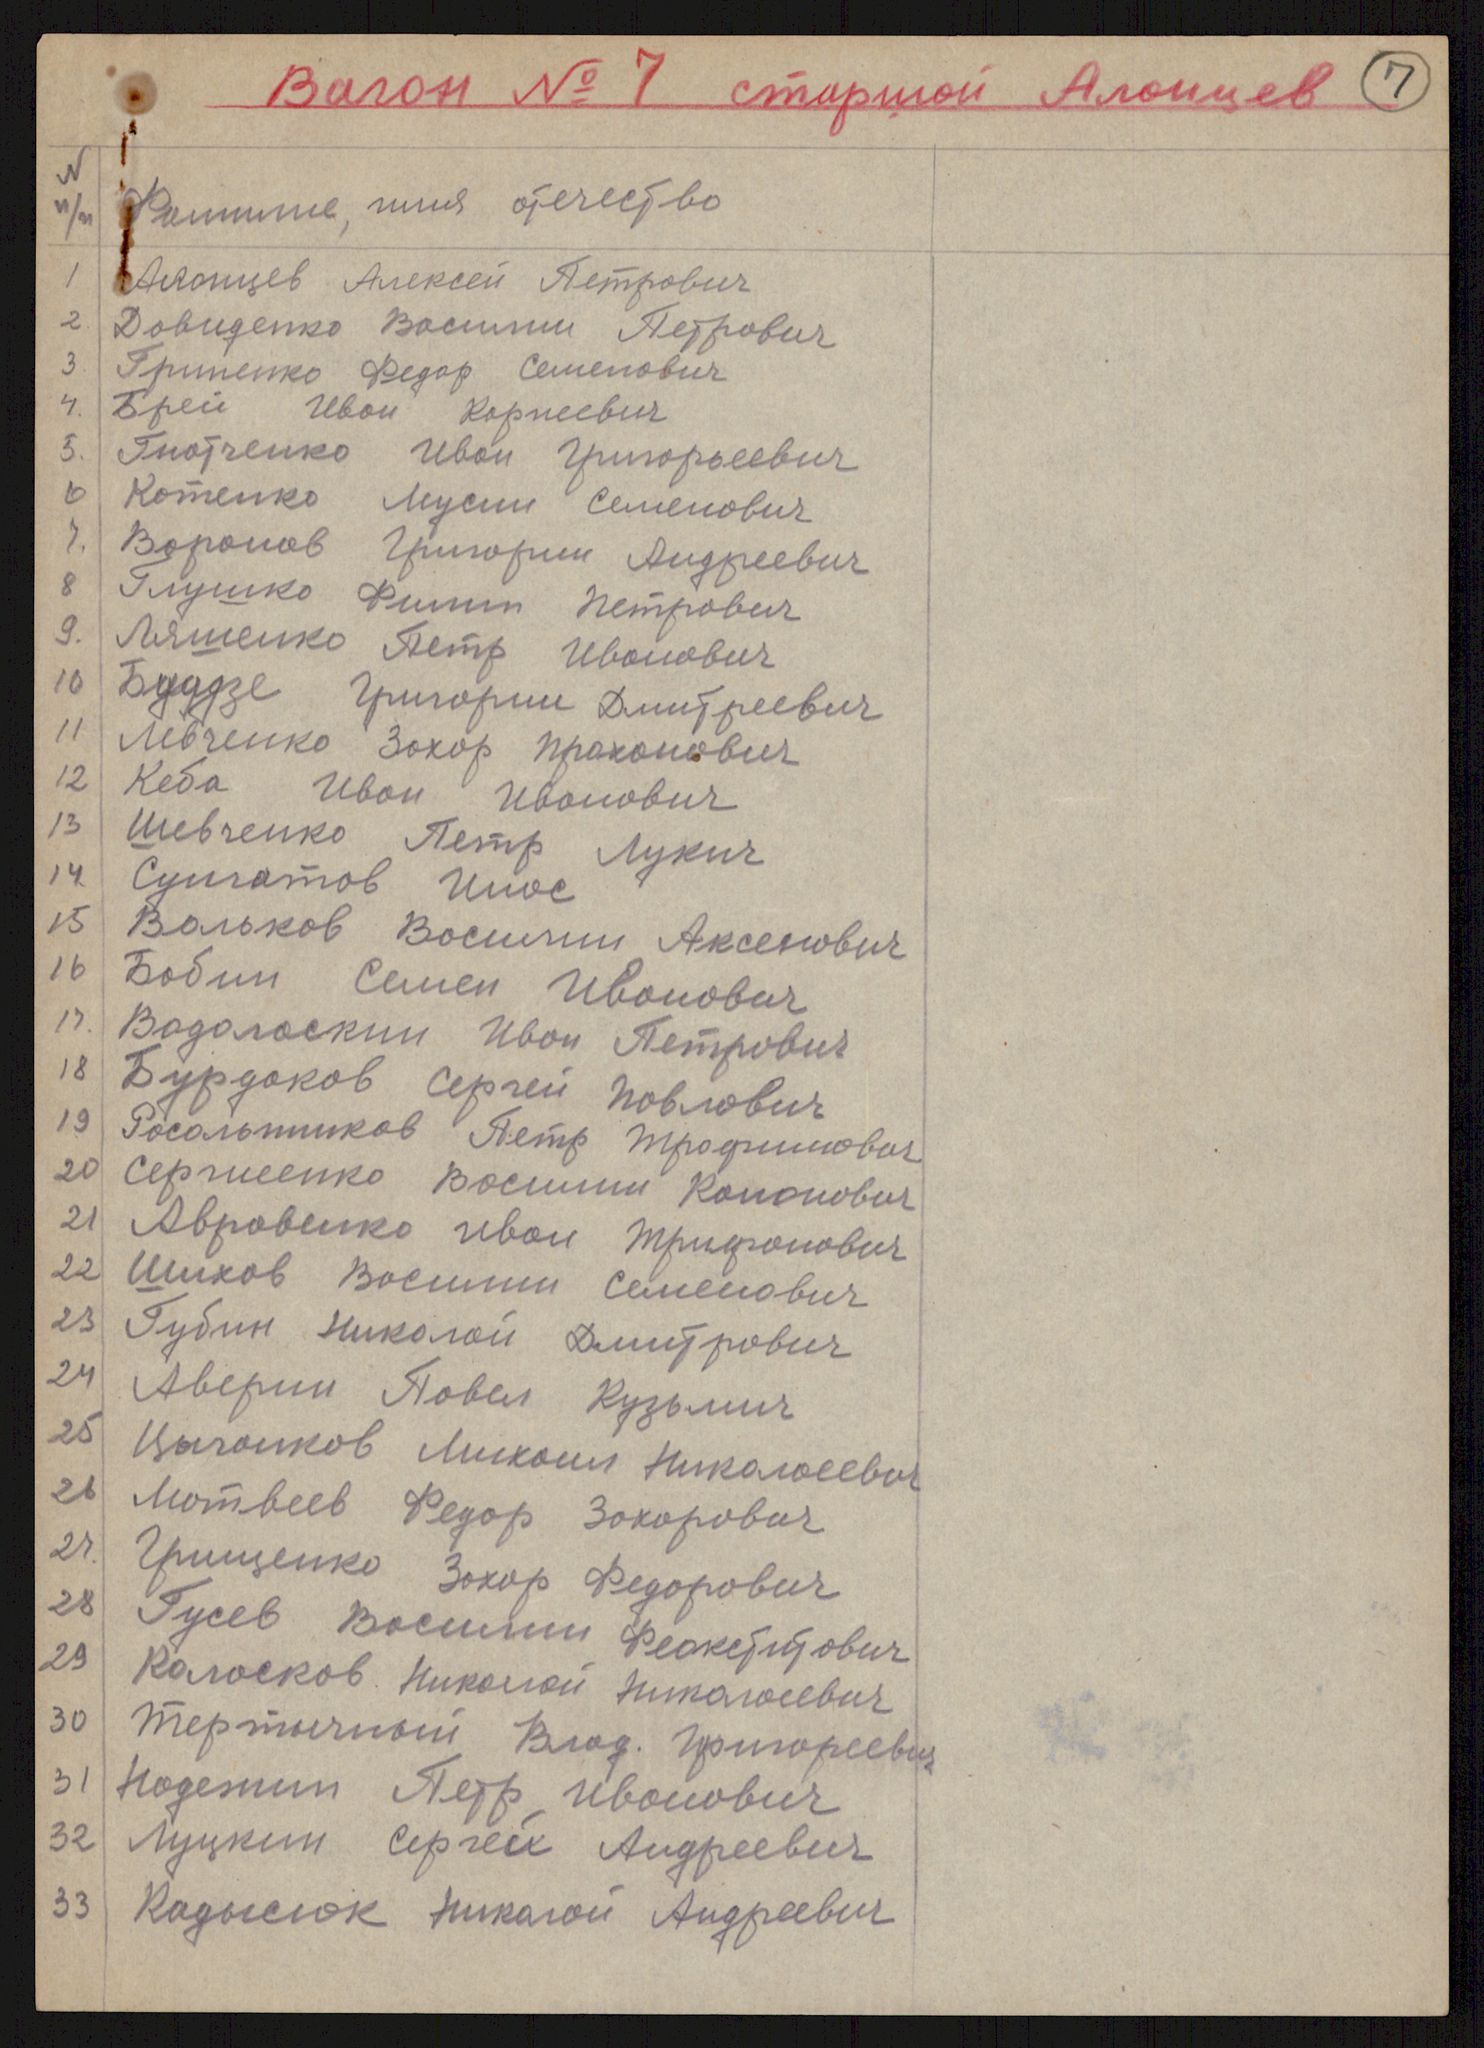 Вагон № 7 старшой Алонцев 7
N п/п Фамилие, имя отечество
1 Алонцев Алексей Петрович
2. Довиденко Василии Петрович
3. Гриненко Федор Семенович
4. Брей Иван Корнеевич
5. Гнотченко Иван Григорьеевич
6 Котенко Мусии Семенович
7. Воронов Григории Андреевич
8 Глушко Филип Петрович
9. Ляшенко Петр Иванович
10 Григории Дмитреевич
11 Левченко Захар Праханович
12 Кеба Иван Иванович
13 Шевченко Петр Лукич
14 Сунгатов
15 Вальков Василии Аксенович
16 Бобин Семен Иванович
17. Водолоскии Иван Петрович
18 Бурдаков Сергей Павлович
19 Росольщиков Петр Трофимович
20 Сергиеенко Василии Кононович
21 Авровенко Иван Трифонович
22 Шихов Василии Семенович
23 Губин Николай Дмитрович
24 Аверин Павел Кузьмич
25 Цыганков Михаил Николаеевич
26 Матвеев Федор Захарович
27. Грищенко Захар Федорович
28 Гусев Василии Феокститович
29 Калосков Николай Николаевич
30 Тертычный Влад. Григореевич
31 Надежин Петр Иванович
32 Луцкии Сергей Андреевич
33 Кадысюк Николай Андреевич